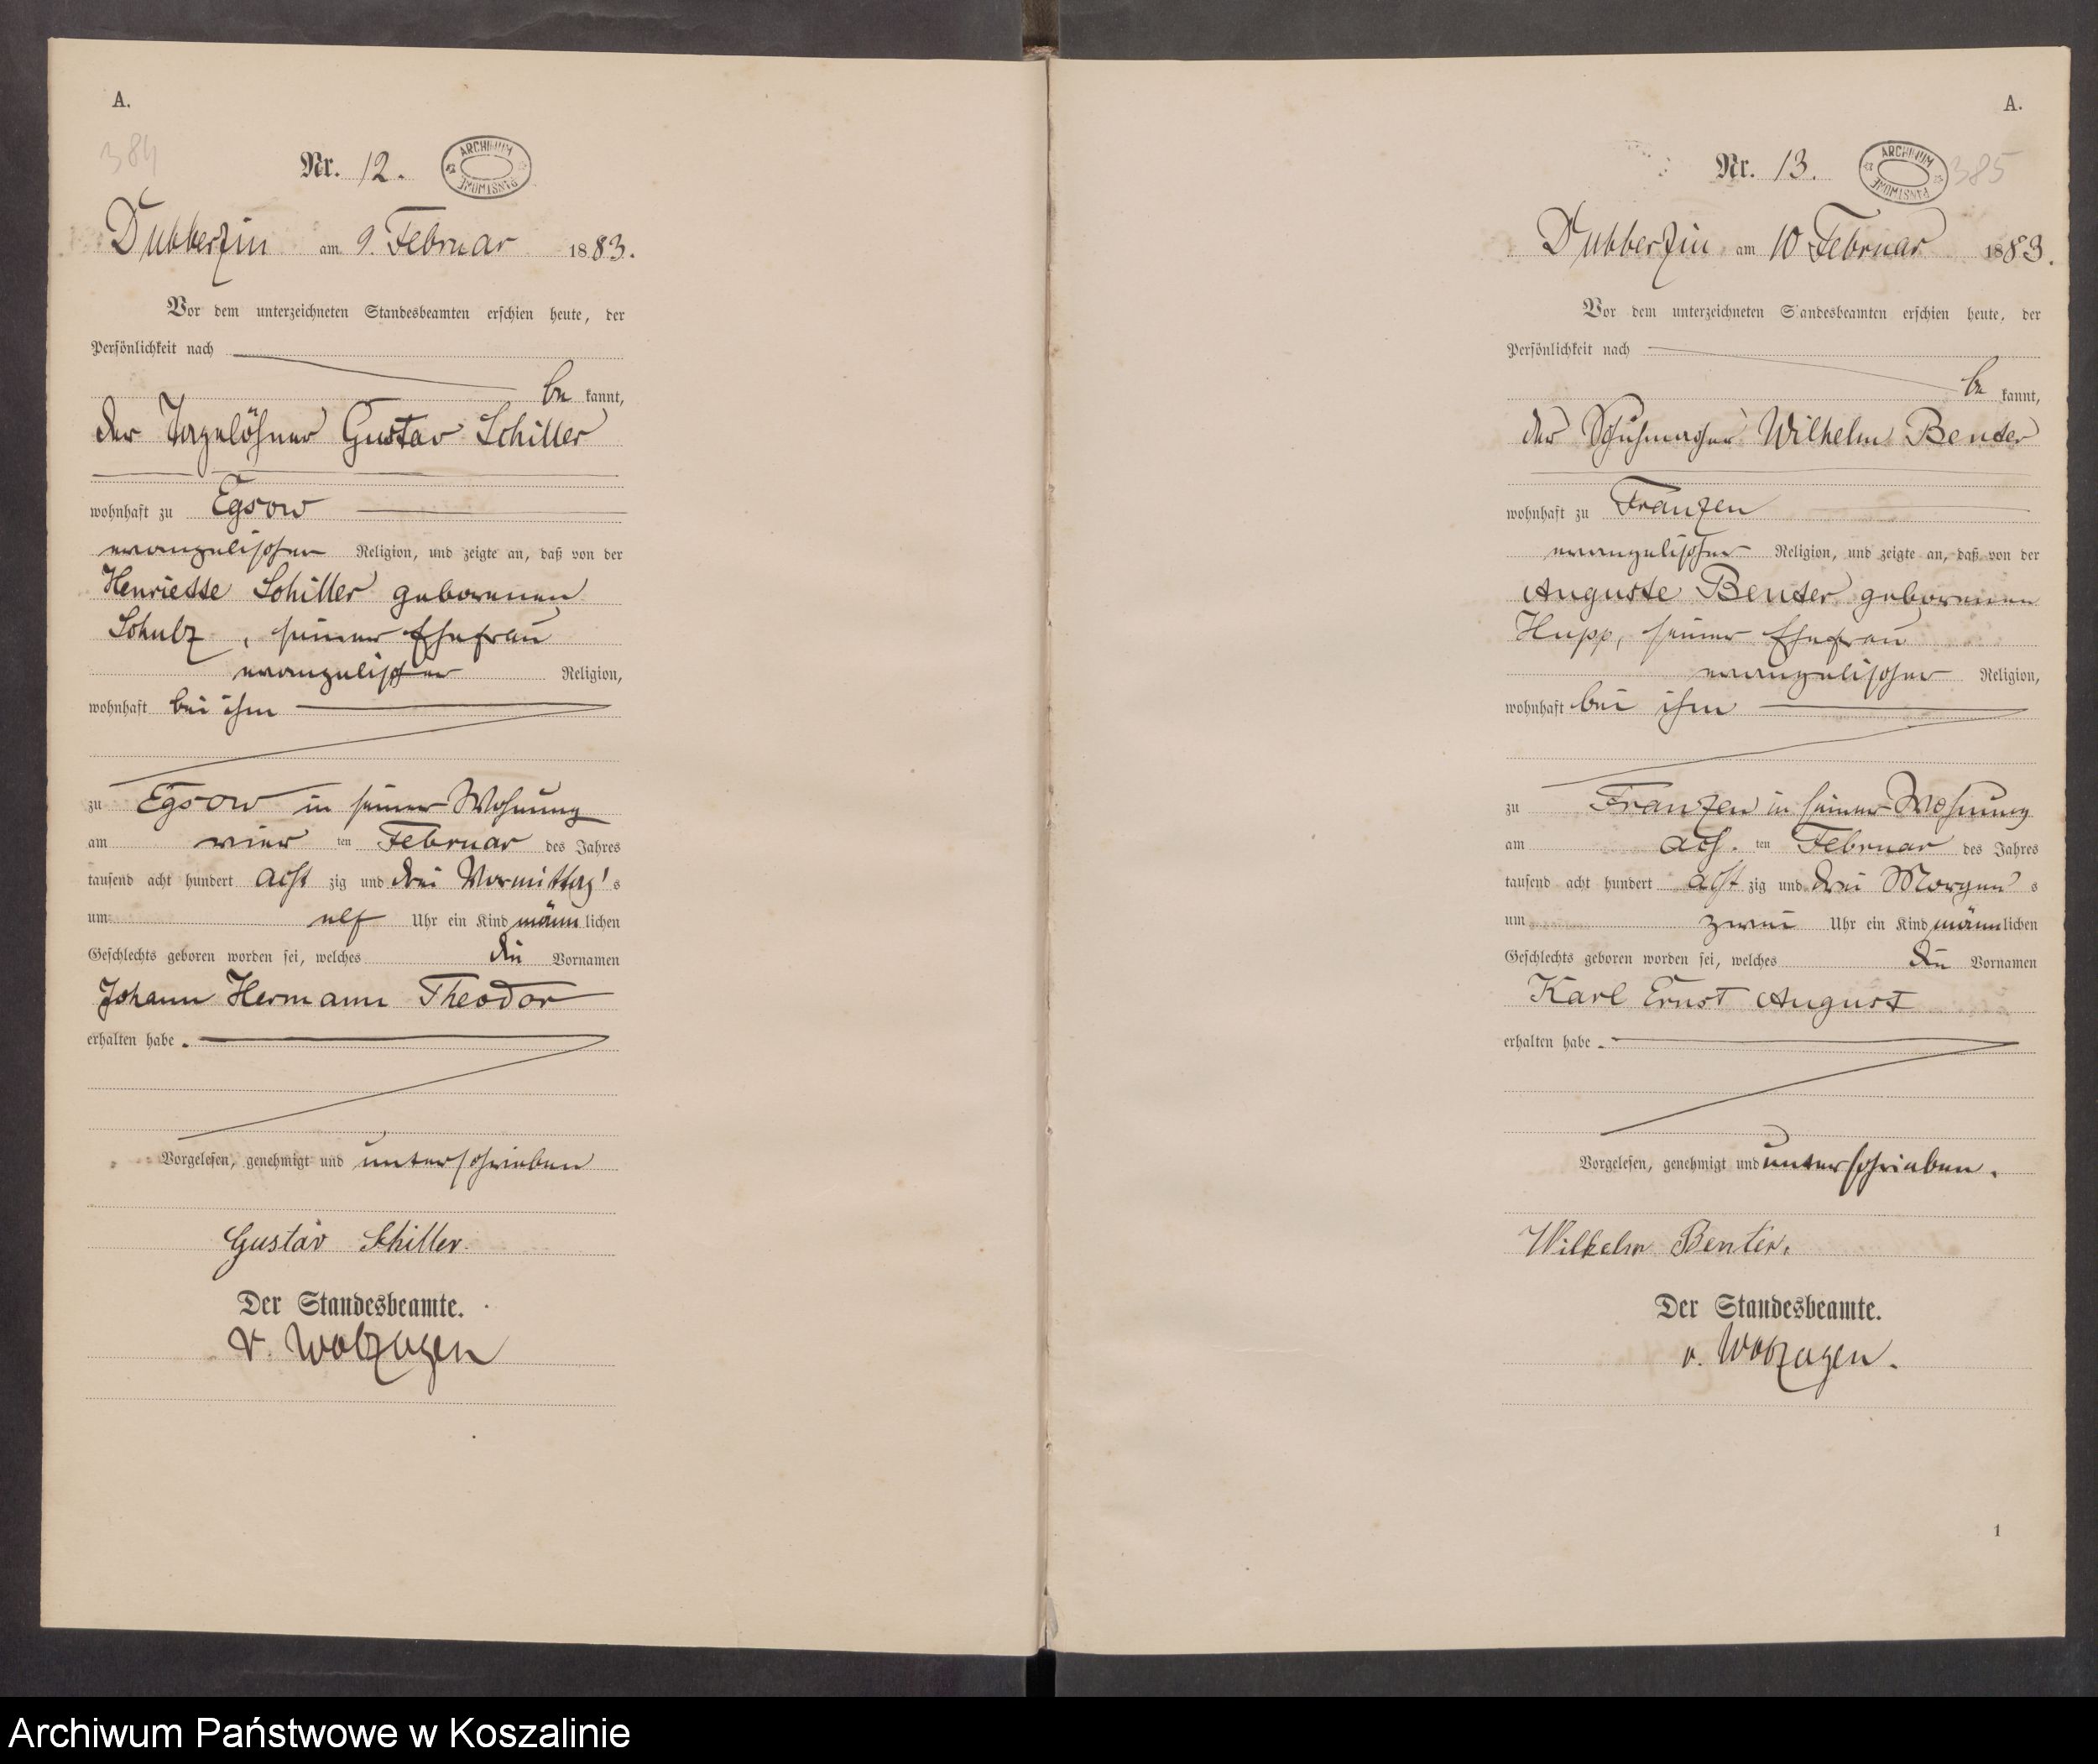 A.
384
Nr. 12.
ARCHIWUM PAŃSTWOWE
Dubberzin am 9. Februar 1883.
Vor dem unterzeichneten Standesbeamten erschien heute, der
Persönlichkeit nach
be kannt,
der Tagelöhner Gustav Schiller
wohnhaft zu Egsow
evangelischer Religion, und zeigte an, daß von der
Henriette Schiller geborenen
Schulz, seiner Ehefrau
evangelischer Religion,
wohnhaft bei ihm
zu Egsow in seiner Wohnung
am vier ten Februar des Jahres
tausend acht hundert acht zig und drei Vormittag's
um elf Uhr ein Kind männlichen
Geschlechts geboren worden sei, welches die Vornamen
Johann Hermann Theodor
erhalten habe.
Vorgelesen, genehmigt und unterschrieben
Gustav Schiller.
Der Standesbeamte.
v. Wolzogen
A.
385
Nr. 13.
ARCHIWUM PAŃSTWOWE
Dubberzin am 10 Februar 1883.
Vor dem unterzeichneten Standesbeamten erschien heute, der
Persönlichkeit nach
be kannt,
der Schuhmacher Wilhelm Benter
wohnhaft zu Franzen
evangelischer Religion, und zeigte an, daß von der
Auguste Benter geborenen
Hupp, seiner Ehefrau
evangelischer Religion,
wohnhaft bei ihm
zu Franzen in seiner Wohnung
am ach. ten Februar des Jahres
tausend acht hundert acht zig und drei Morgen s
um zwei Uhr ein Kind männlichen
Geschlechts geboren worden sei, welches die Vornamen
Karl Ernst August
erhalten habe.
Vorgelesen, genehmigt und unterschrieben.
Wilhelm Benter.
Der Standesbeamte.
v. Wolzogen.
1
Archiwum Państwowe w Koszalinie